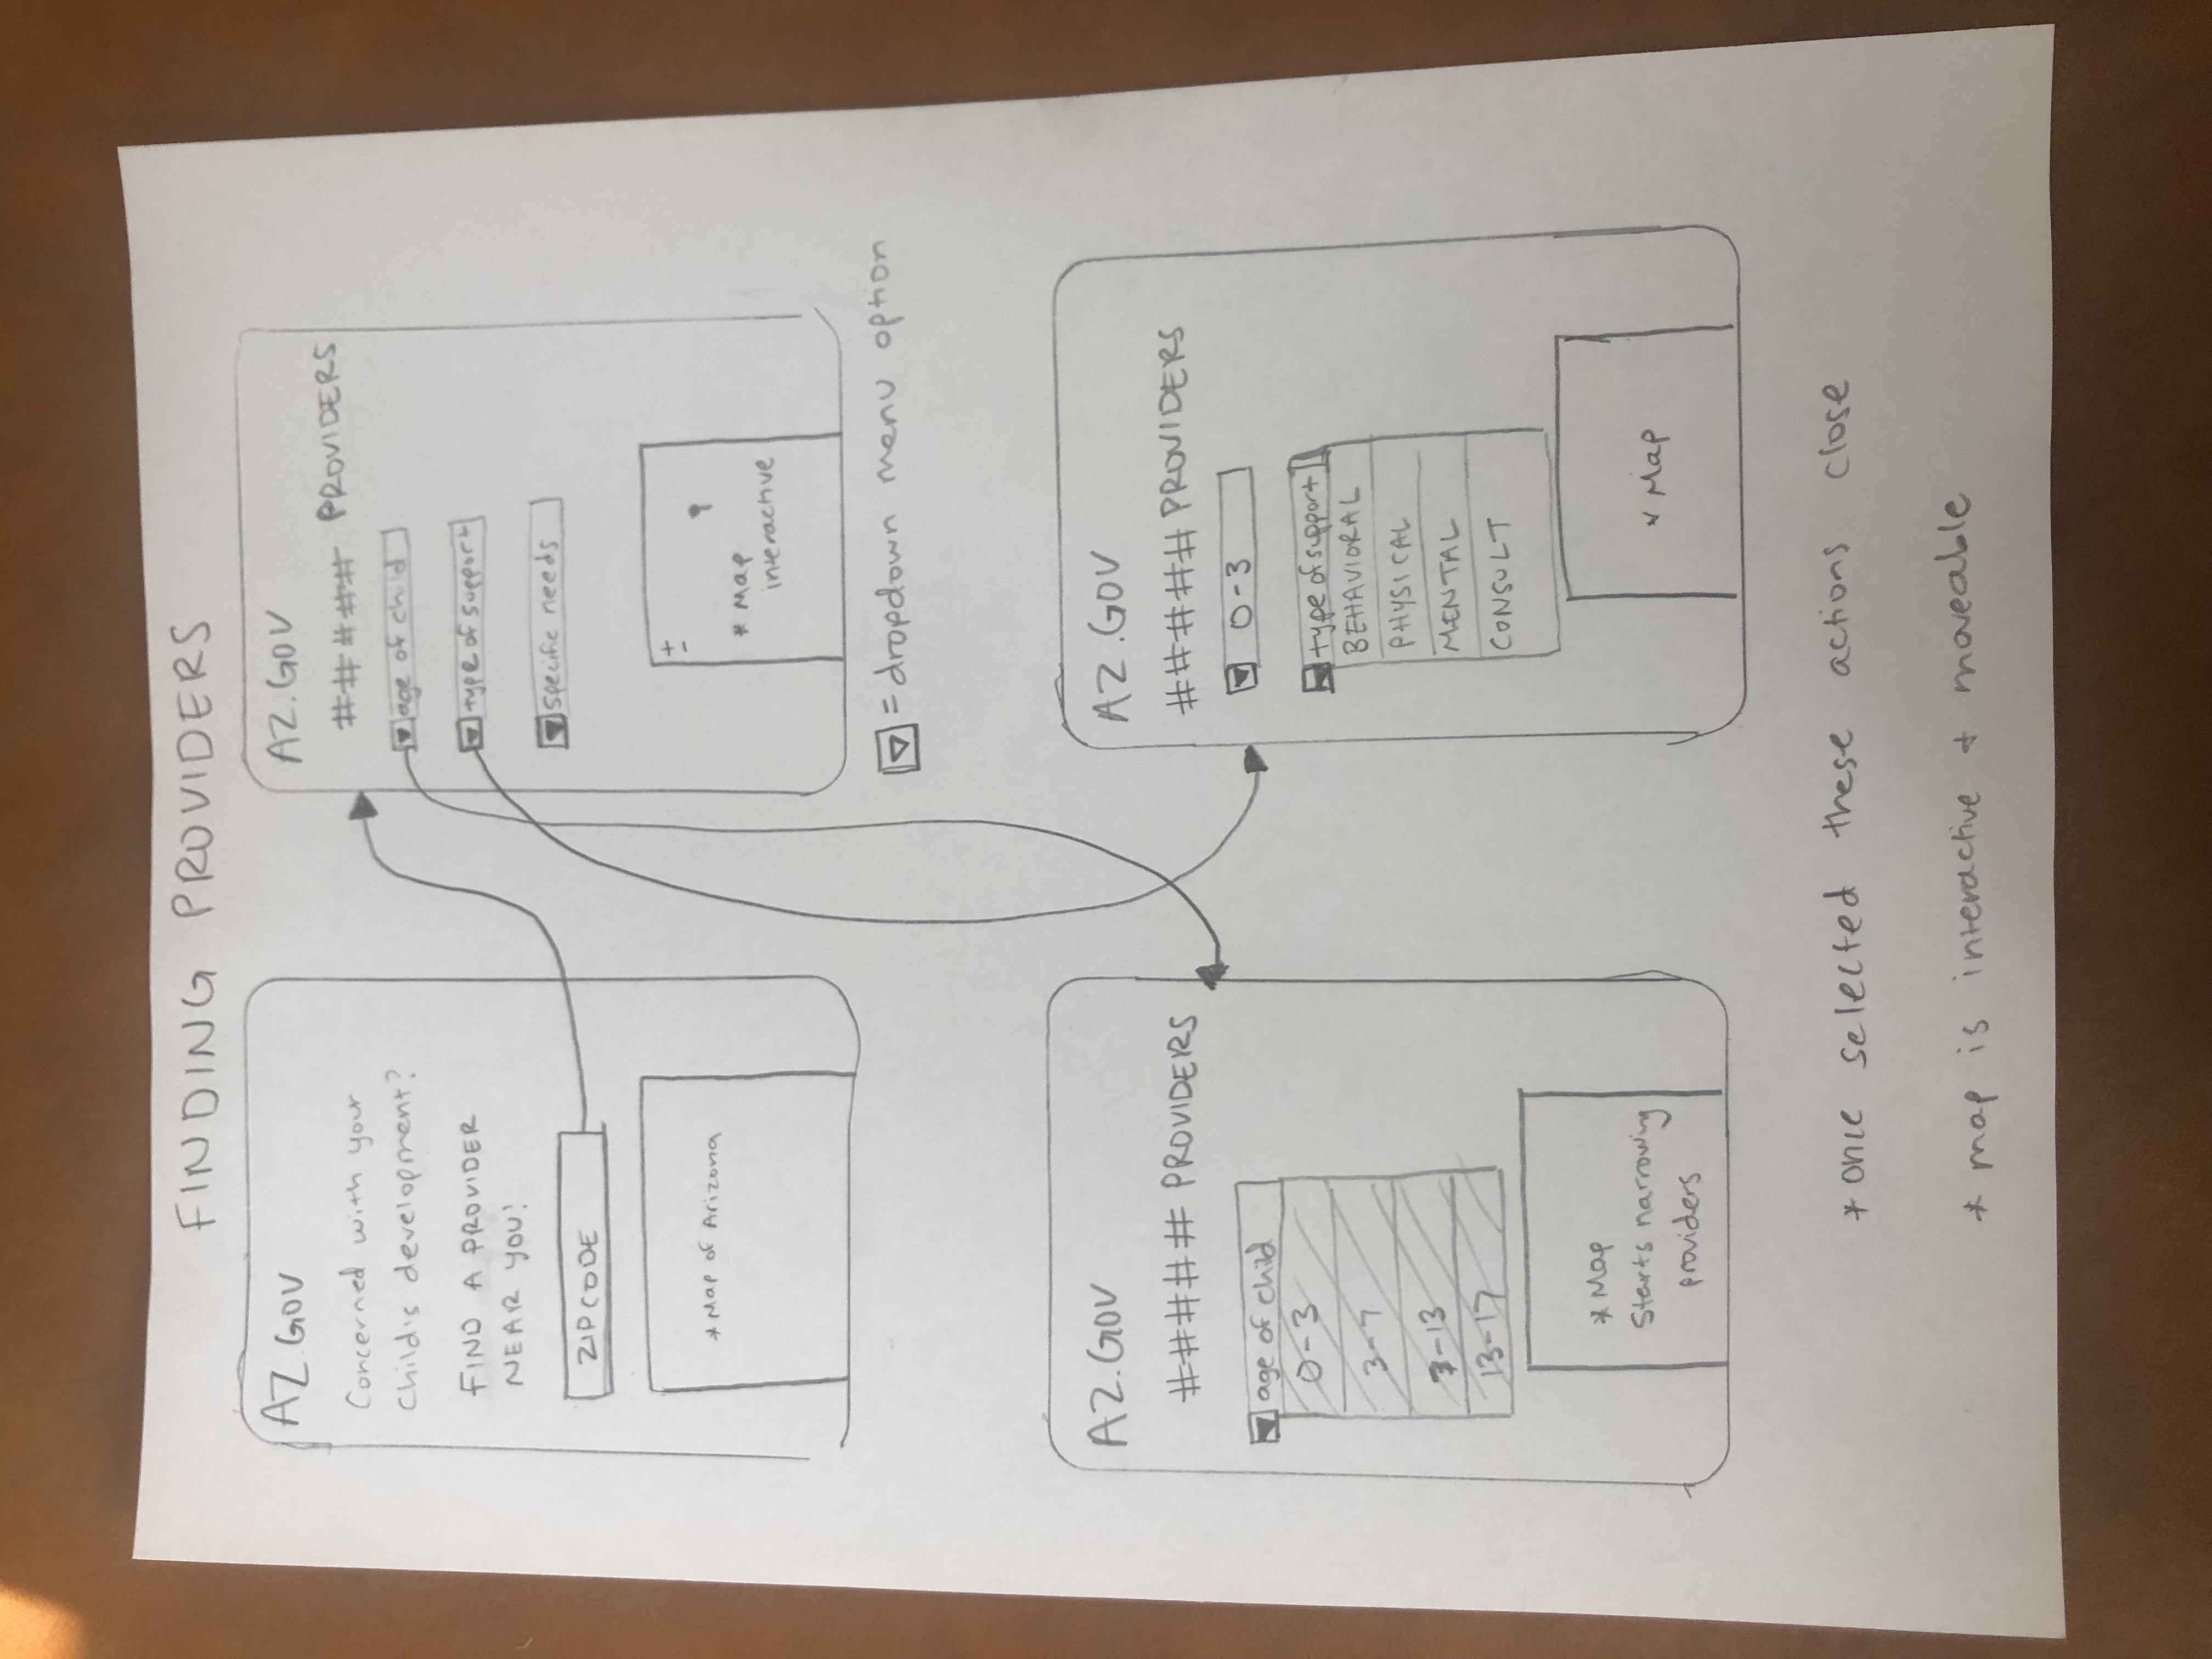 FINDING PROVIDERS
AZ.GOV
Concerned with your
Child's development?
FIND A PROVIDER
NEAR YOU!
ZIPCODE
* Map of Arizona
AZ.GOV
##### PROVIDERS
age of child
type of support
specific needs
+
-
* Map
interactive
= dropdown menu option
AZ.GOV
##### PROVIDERS
age of child
0-3
3-7
7-13
13-17
* Map
Starts narrowing
providers
AZ.GOV
##### PROVIDERS
0-3
type of support
BEHAVIORAL
PHYSICAL
MENTAL
CONSULT
* Map
* once selected these actions close
* map is interactive + moveable